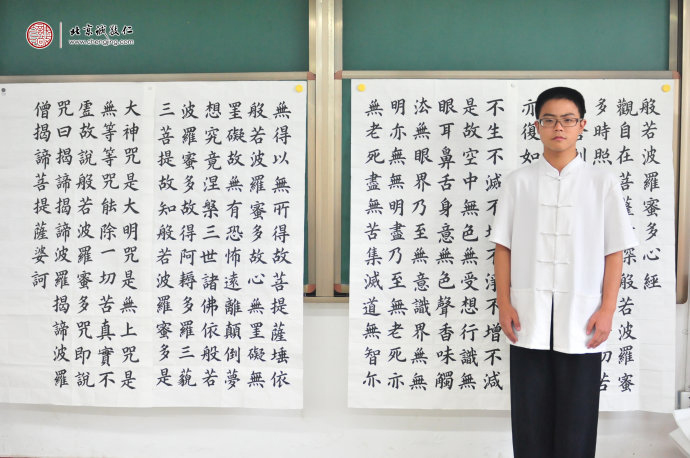 北京誠敬仁
www.chengjing.com
般若波羅蜜多心經
觀自在菩薩行深般若波羅蜜
多時照
切苦
亦復如
不生不滅不垢不淨不增不減
是故空中無色無受想行識無
眼耳鼻舌身意無色聲香味觸
法無眼界乃至無意識界無無
明亦無無明盡乃至無老死亦
無老死盡無苦集滅道無智亦
無得以無所得故菩提薩埵依
般若波羅蜜多故心無罣礙無
罣礙故無有恐怖遠離顛倒夢
想究竟涅槃三世諸佛依般若
波羅蜜多故得阿耨多羅三藐
三菩提故知般若波羅蜜多是
大神咒是大明咒是無上咒是
無等等咒能除一切苦真實不
虛故說般若波羅蜜多咒即說
咒曰揭諦揭諦波羅揭諦波羅
僧揭諦菩提薩婆訶